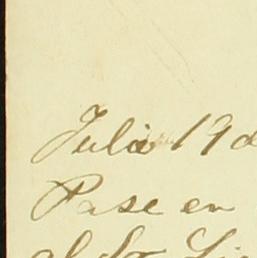 Julio 19 d
Pase en
al Sr. Fi